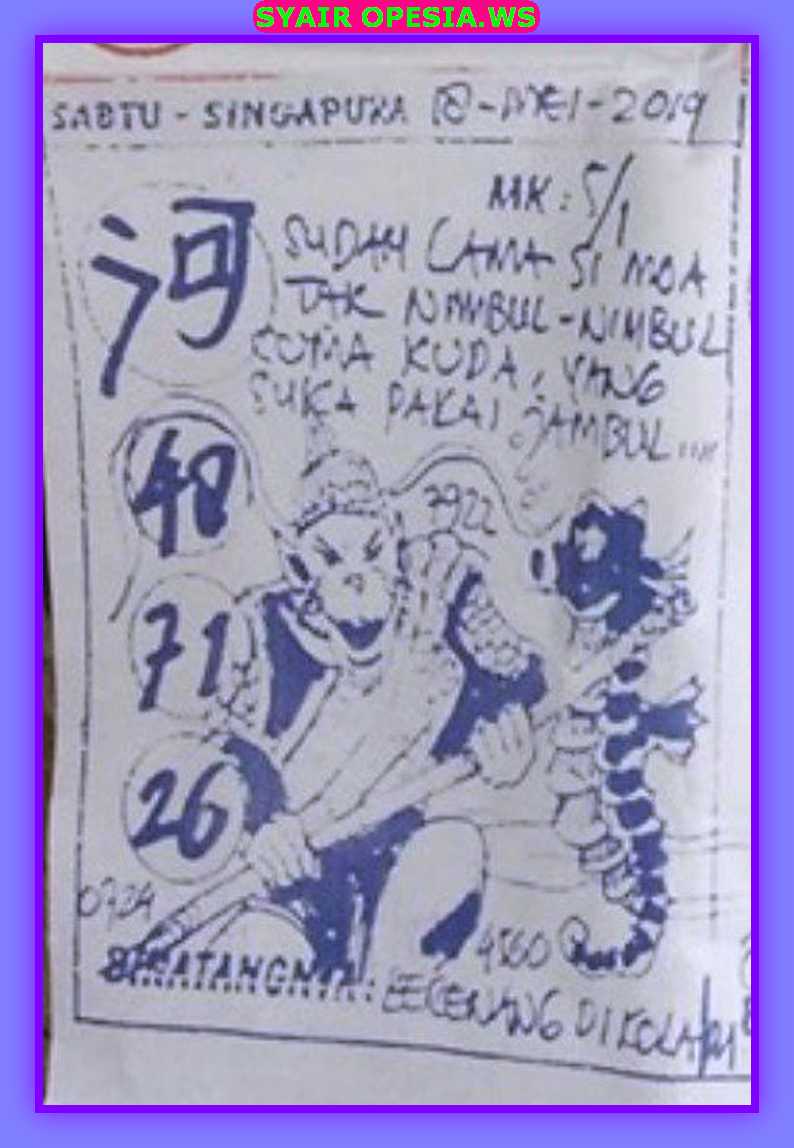 SYAIR OPESIA.WS
SABTU - SINGAPURA 18-MEI-2019
MK : 5/1
河
SUDAH LAMA SI NOA
TAK NIMBUL-NIMBUL
CUMA KUDA, YANG
SUKA PAKAI JAMBUL....
48
7922
71
26
0724
4560
BINATANGNYA: BERENANG DI KOLAM